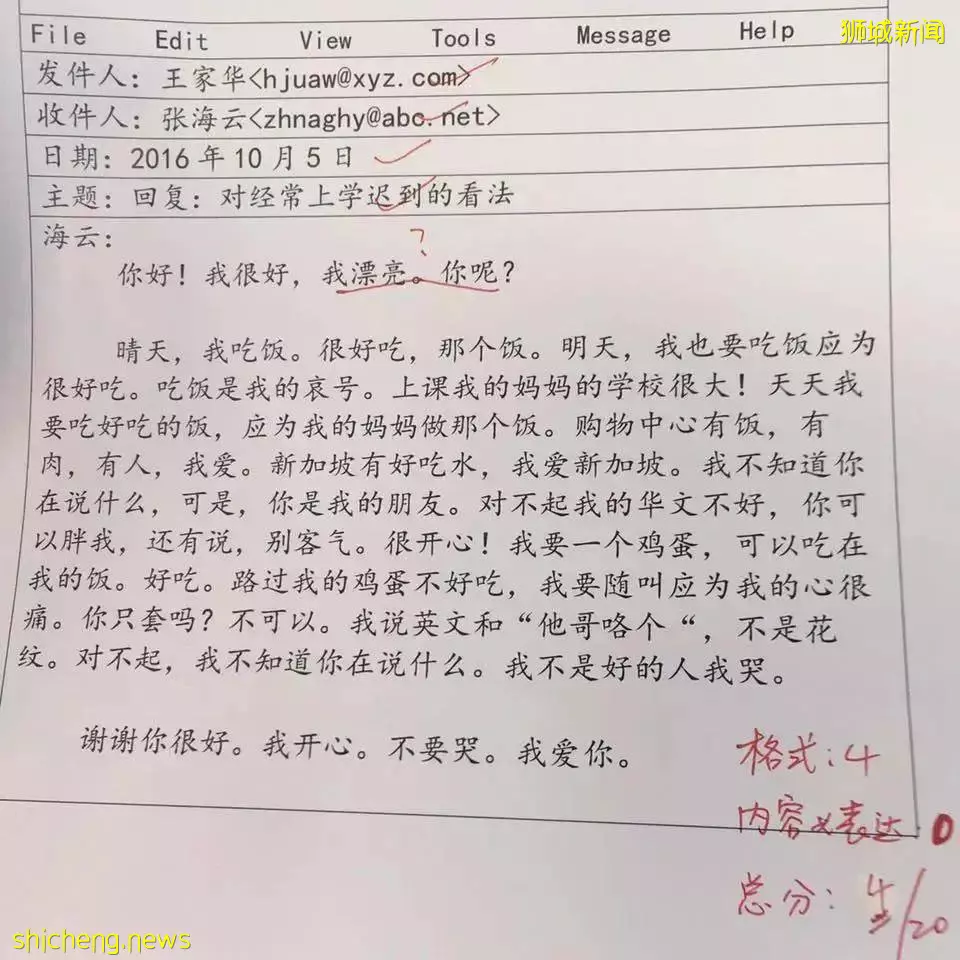 File Edit View Tools Message Help 狮城新闻
发件人：王家华<hjuaw@xyz.com>
收件人：张海云<zhnaghy@abc.net>
日期：2016 年 10 月 5 日
主题：回复：对经常上学迟到的看法
海云：
?
你好！我很好，我漂亮。你呢？
晴天，我吃饭。很好吃，那个饭。明天，我也要吃饭应为
很好吃。吃饭是我的哀号。上课我的妈妈的学校很大！天天我
要吃好吃的饭，应为我的妈妈做那个饭。购物中心有饭，有
肉，有人，我爱。新加坡有好吃水，我爱新加坡。我不知道你
在说什么，可是，你是我的朋友。对不起我的华文不好，你可
以胖我，还有说，别客气。很开心！我要一个鸡蛋，可以吃在
我的饭。好吃。路过我的鸡蛋不好吃，我要随叫应为我的心很
痛。你只套吗？不可以。我说英文和“他哥咯个“，不是花
纹。对不起，我不知道你在说什么。我不是好的人我哭。
谢谢你很好。我开心。不要哭。我爱你。
格式：4
内容义表达：0
总分：4/20
shicheng.news